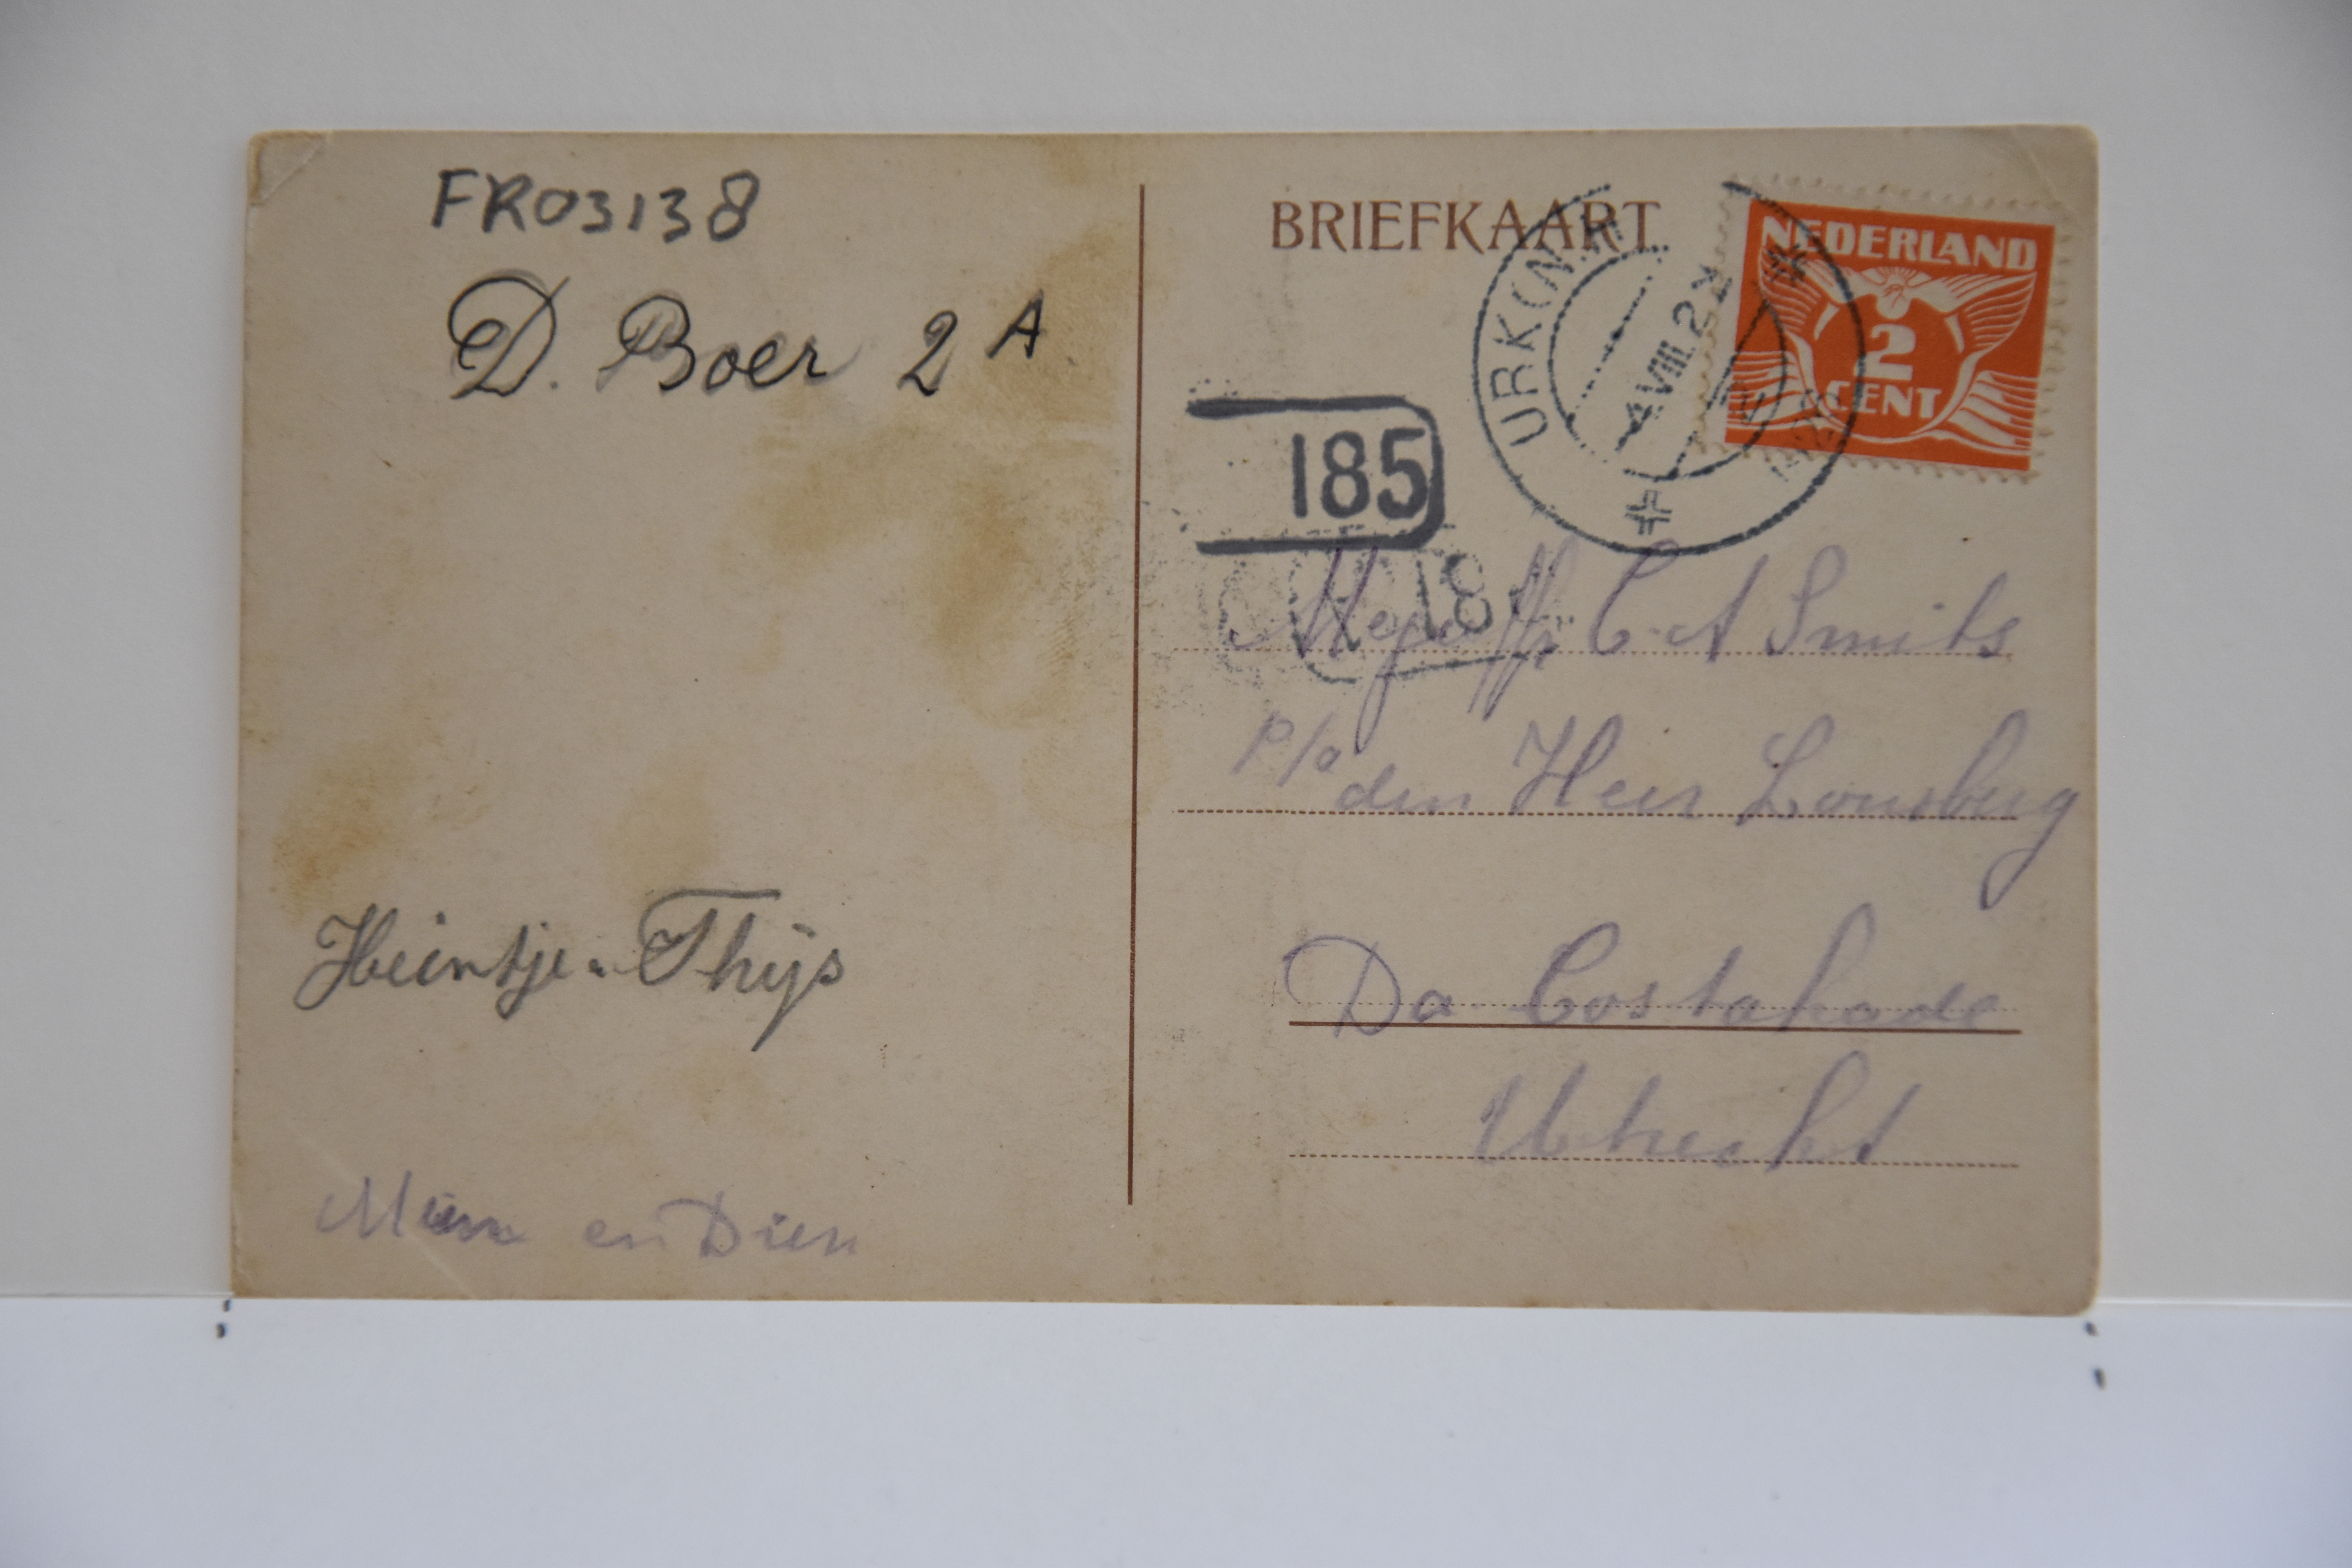 FR03138
D. Boer 2A
Heintje. Thijs
Mien en Dien
BRIEFKAART
URK (N.H
4 VIII. 2
NEDERLAND
2
CENT
185
18
Mejuffr C. A Smits
p/a den Heer
Da Costakade
Utrecht